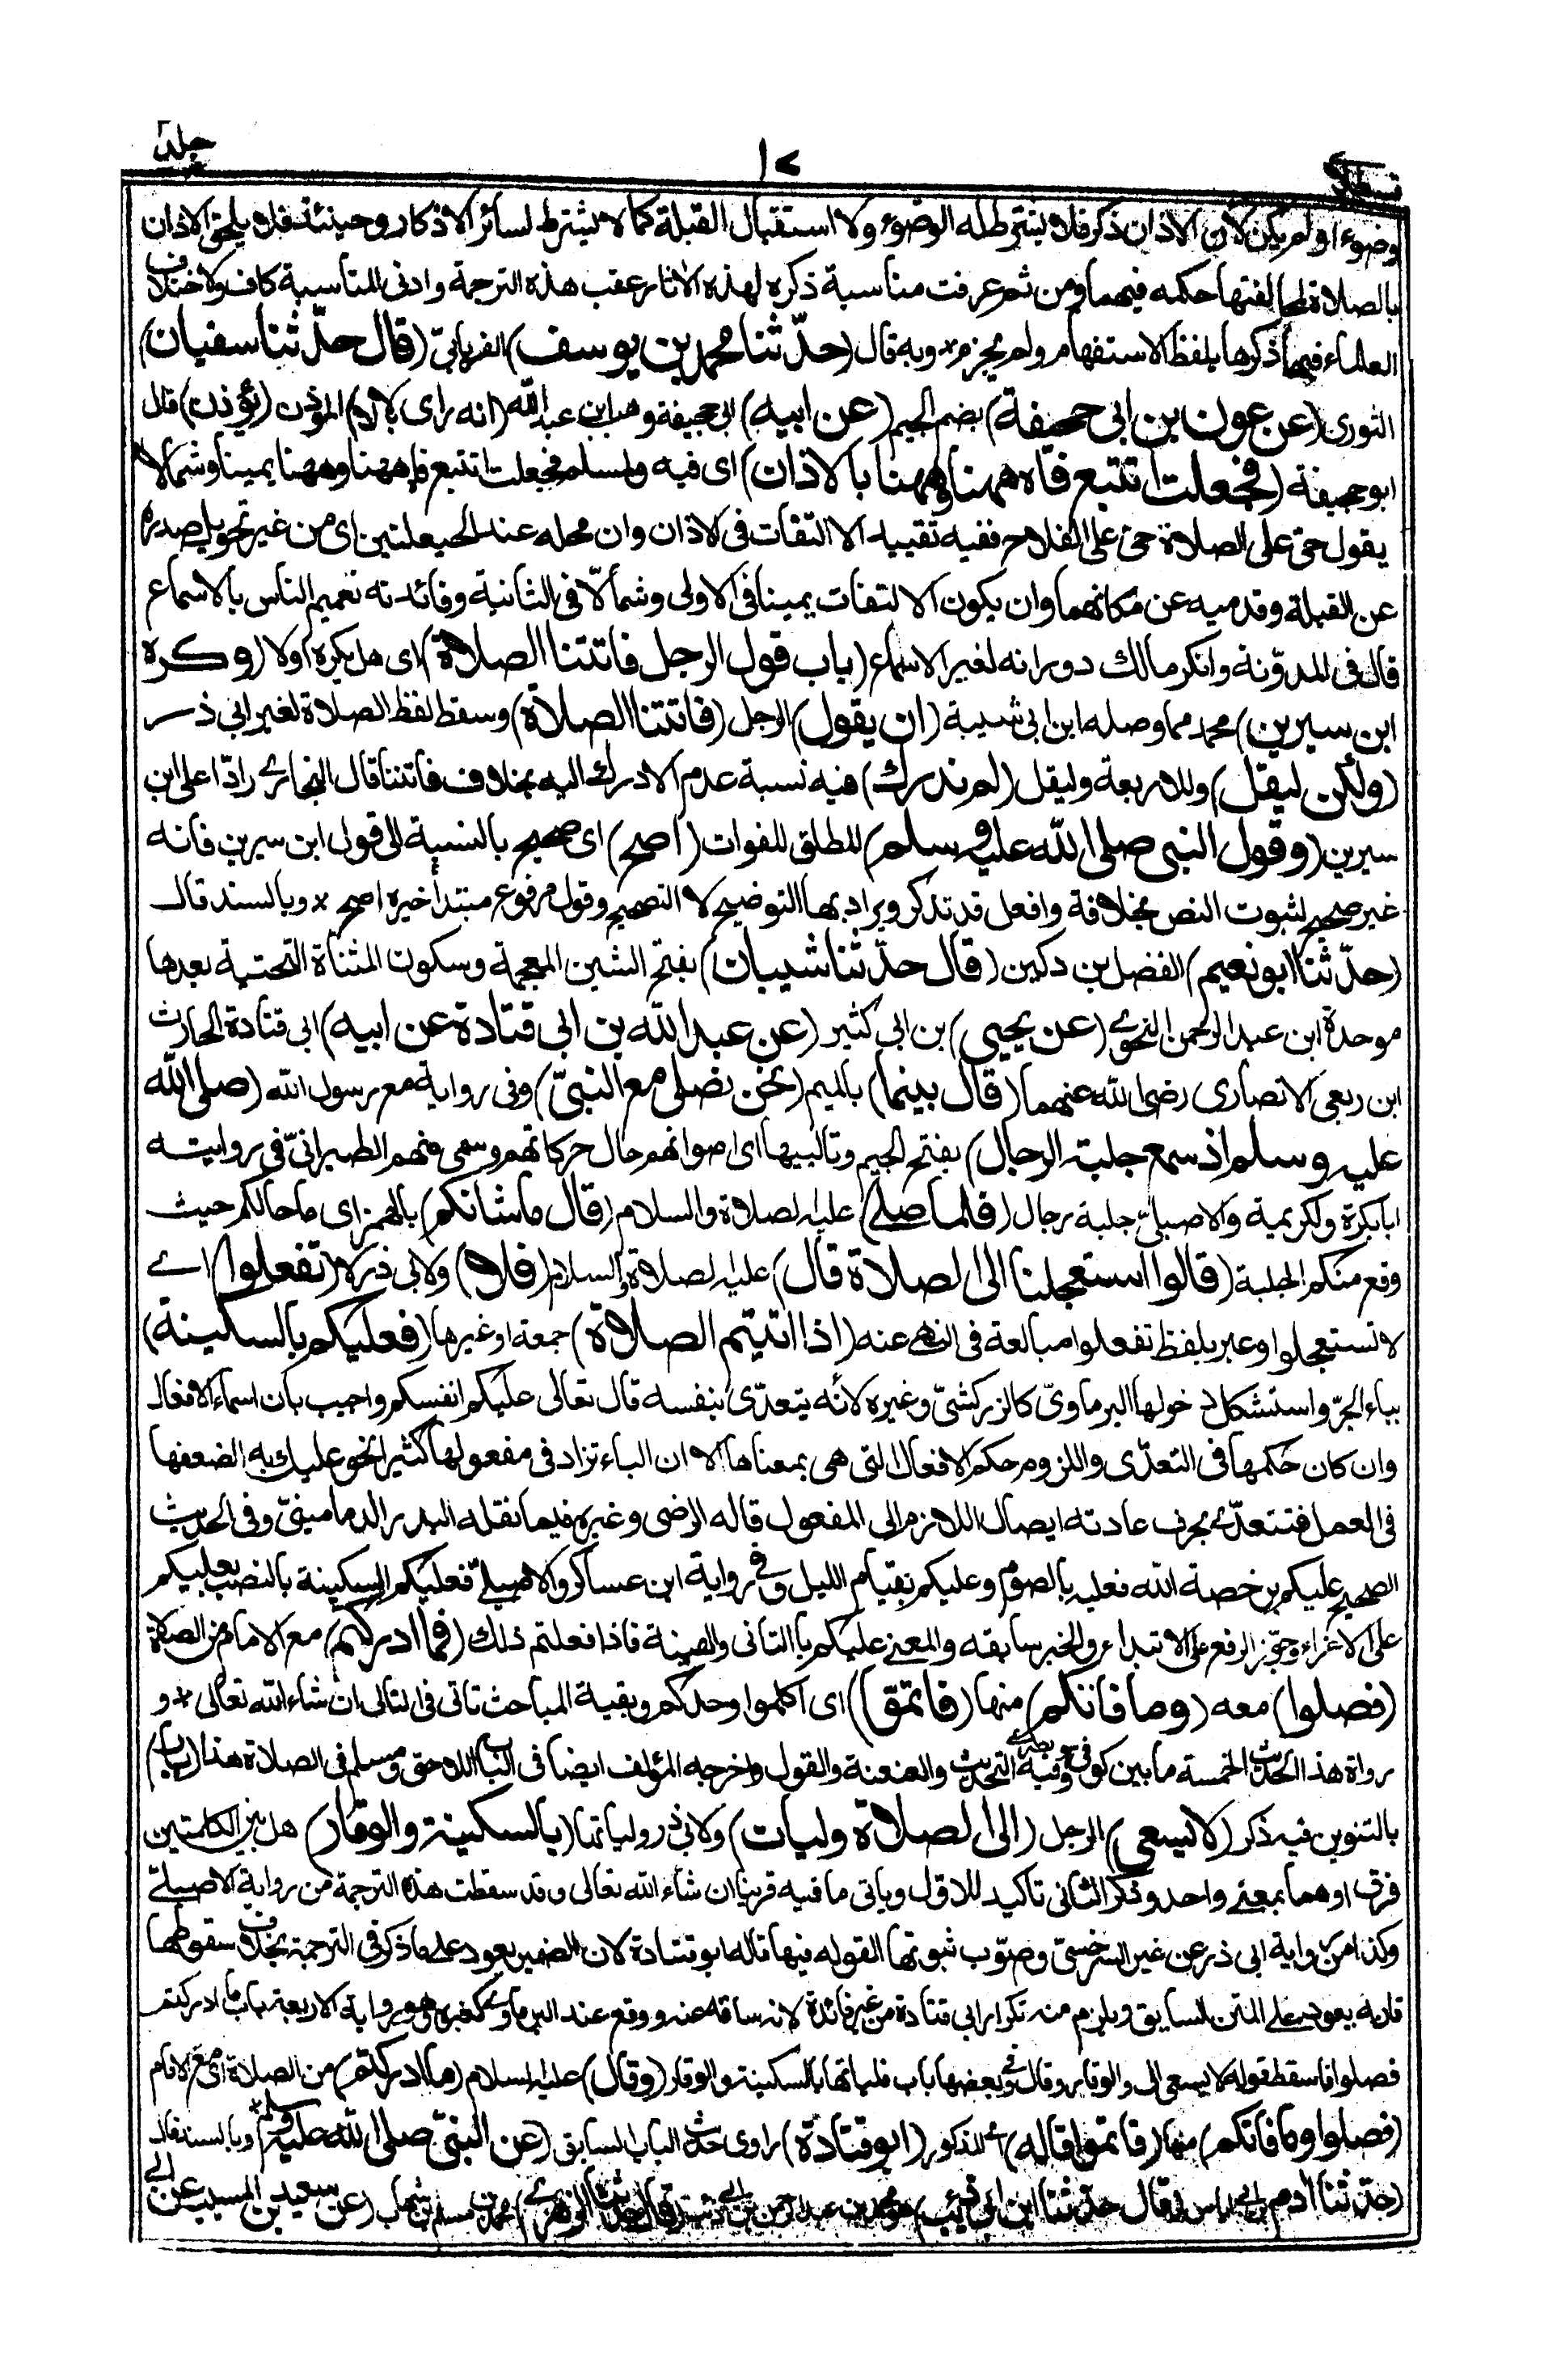 جلد٢
١٧
قسطلانى
وضوء او لم يكن لأن الاذان ذكر فلا يشترط له الوضوء ولا استقبال القبلة كما لا يشترط لسائر الاذكار وحينئذ فلا يلحق الاذان
بالصلاة لمخالفتها حكمه فيهما ومن ثم عرفت مناسبة ذكره لهذه الاثار عقب هذه الترجمة وادنى المناسبة كاف ولاختلاف
العلماء فيها ذكرها بلفظ الاستفهام ولم يجزم * وبه قال (حدّثنا محمد بن يوسف) الفريابىّ (قال حدّثنا سفيان)
الثورى (عن عون بن ابى جحيفة) بضم الجيم (عن ابيه) ابى جحيفة وهب ابن عبد الله (انه راى بلالا) المؤذن (يؤذن) قال
ابو جحيفة (فجعلت اتتبع فاه ههنا وههنا بالاذان) اى فيه ولمسلم فجعلت اتتبع فاه ههنا وههنا يمينا وشمالا
يقول حىّ على الصلاة حىّ على الفلاح ففيه تقييد الالتفات فى الاذان وان محله عند الحيعلتين اى من غير تحويل صدره
عن القبلة وقدميه عن مكانهما وان يكون الالتفات يمينا فى الاولى وشمالا فى الثانية وفائدته تعميم الناس بالاسماع
قال فى المدوّنة وانكر مالك دورانه لغير الاسماع (باب قول الرجل فاتتنا الصلاة) اى هل يكره اولا (وكره
ابن سيرين) محمد مما وصله ابن ابى شيبة (ان يقول) الرجل (فاتتنا الصلاة) وسقط لفظ الصلاة لغير ابى ذر
(ولكن ليقل) وللاربعة وليقل (لم ندرك) فيه نسبة عدم الادراك اليه بخلاف فاتتنا قال البخارى رادّا على ابن
سيرين (وقول النبى صلى الله عليه وسلم) المطلق للفوات (اصح) اى صحيح بالنسبة الى قول ابن سيرين فانه
غير صحيح لثبوت النص بخلافة وافعل قد تذكر ويراد بها التوضيح لا التصحيح وقول مرفوع مبتدأ خبره اصح * وبالسند قال
(حدّثنا ابو نعيم) الفضل بن دكين (قال حدّثنا شيبان) بفتح الشين المعجمة وسكون المثناة التحتية بعدها
موحدة ابن عبد الرحمن النحوى (عن يحيى) بن ابى كثير (عن عبد الله بن ابى قتادة عن ابيه) ابى قتادة الحارث
ابن ربعى الانصارى رضى الله عنهما (قال بينما) بالميم (نحن نصلى مع النبىّ) وفى رواية مع رسول الله (صلى الله
عليه وسلم اذ سمع جلبة الرجال) بفتح الجيم وتالييها اى اصواتهم حال حركاتهم وسمى منهم الطبرانىّ فى روايته
ابا بكرة ولكريمة والاصيلىّ جلبة رجال (فلما صلى) عليه الصلاة والسلام (قال ما شانكم) بالهمز اى ما حالكم حيث
وقع منكم الجلبة (قالوا استعجلنا الى الصلاة قال) عليه الصلاة والسلام (فلا) ولابى ذر لا (تفعلوا) اى
لا تستعجلوا وعبر بلفظ تفعلوا مبالغة فى النهى عنه (اذا اتيتم الصلاة) جمعة او غيرها (فعليكم بالسكينة)
بباء الجرّ واستشكل دخولها البرماوىّ كالزركشىّ وغيره لأنه يتعدّى بنفسه قال تعالى عليكم انفسكم واجيب بان اسماء الافعال
وان كان حكمها فى التعدّى واللزوم حكم الافعال التى هى بمعناها الا ان الباء تزاد فى مفعولها كثيرا نحو عليك به لضعفها
فى العمل فتتعدّى بحرف عادته ايصال اللازم الى المفعول قاله الرضى وغيره فيما نقله البدر الدمامينىّ وفى الحديث
الصحيح عليكم برخصة الله فعليه بالصوم وعليكم بقيام الليل وفى رواية ابن عساكر والاصيلىّ فعليكم السكينة بالنصب بعليكم
على الاغراء وجوّز الرفع على الابتداء والخبر سابقه والمعنى عليكم بالتانى والهينة فاذا فعلتم ذلك (فما ادركتم) مع الامام من الصلاة
(فصلوا) معه (وما فاتكم) منها (فاتمّوا) اى اكملوا وحدكم وبقية المباحث تاتى فى التالى ان شاء الله تعالى * و
رواة هذا الحديث الخمسة ما بين كوفى وبصرى وفيه التحديث والعنعنة والقول واخرجه المؤلف ايضا فى الباب اللاحق ومسلم فى الصلاة هذا (باب)
بالتنوين فيه ذكر (لا يسعى) الرجل (الى الصلاة وليات) ولابى ذر ولياتها (بالسكينة والوقار) هل بين الكلمتين
فرق او هما بمعنى واحد وذكر الثانى تاكيد للاوّل وياتى ما فيه قريبا ان شاء الله تعالى وقد سقطت هذه الترجمة من رواية الاصيلىّ
وكذا من رواية ابى ذر عن غير السرخسىّ وصوّب ثبوتها لقوله فيها قاله ابو قتادة لان الضمير يعود على ما ذكر فى الترجمة بخلاف سقوطها
فانه يعود على المتن السابق ويلزم منه تكرار ابى قتادة من غير فائدة لانه ساقه عنه ووقع عند البرماوى كغيره وهو رواية الاربعة باب ما ادركتم
فصلوا فاسقط قوله لا يسعى الى والوقار وقال فى بعضها باب فلياتها بالسكينة والوقار (وقال) عليه السلام (ما ادركتم) من الصلاة اى مع الامام
(فصلوا وما فاتكم) منها (فاتموا قاله) اى المذكور (ابو قتادة) راوى حديث الباب السابق (عن النبىّ صلى الله عليه وسلم) * وبالسند قال
(حدّثنا ادم) بن ابى اياس (قال حدّثنا ابن ابى ذئب) هو محمد بن عبد الرحمن بن ابى ذئب (قال حدثنا الزهرى) محمد بن مسلم بن شهاب (عن سعيد بن المسيب عن ابى